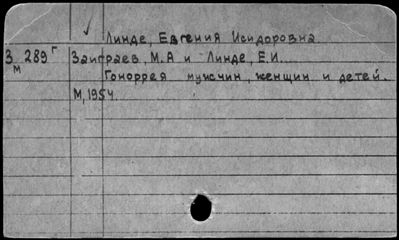 Линде, Евгения Исидоровна.
З 289 г Заиграев, М.А и Линде, Е.И...
м Гоноррея мужчин, женщин и детей.
М, 1954.